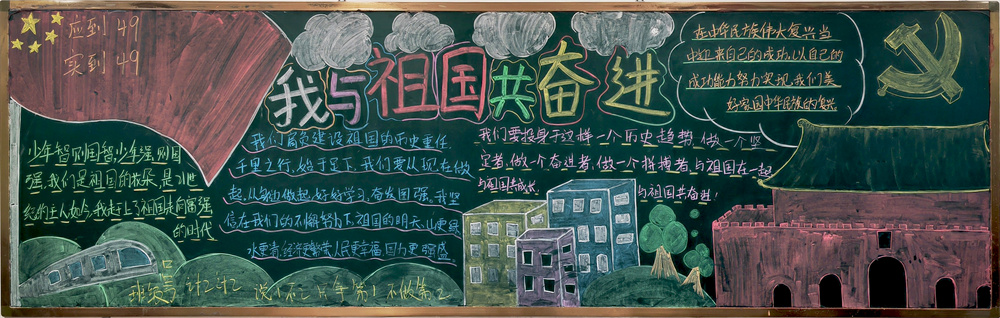 应到 49
实到 49
我与祖国共奋进
少年智则国智,少年强则国
强,我们是祖国的花朵,是21世
纪的主人,如今,我赶上了祖国走向富强
的时代
我们肩负建设祖国的历史重任,
千里之行,始于足下,我们要从现在做
起,从我做起,好好学习,奋发图强。我坚
信在我们的不懈努力下,祖国的明天,山更绿
水更清,经济更繁荣,人民更幸福,国力更强盛。
我们要投身于这样一个历史趋势,做一个坚
定者,做一个奋进者,做一个拼搏者,与祖国在一起
与祖国共成长,
与祖国共奋进!
在中华民族伟大复兴当
中迎来自己的成功,以自己的
成功能力努力实现,我们美
好家园中华民族的复兴
班级号 计2计2
说不不二 只争第1 不做第2